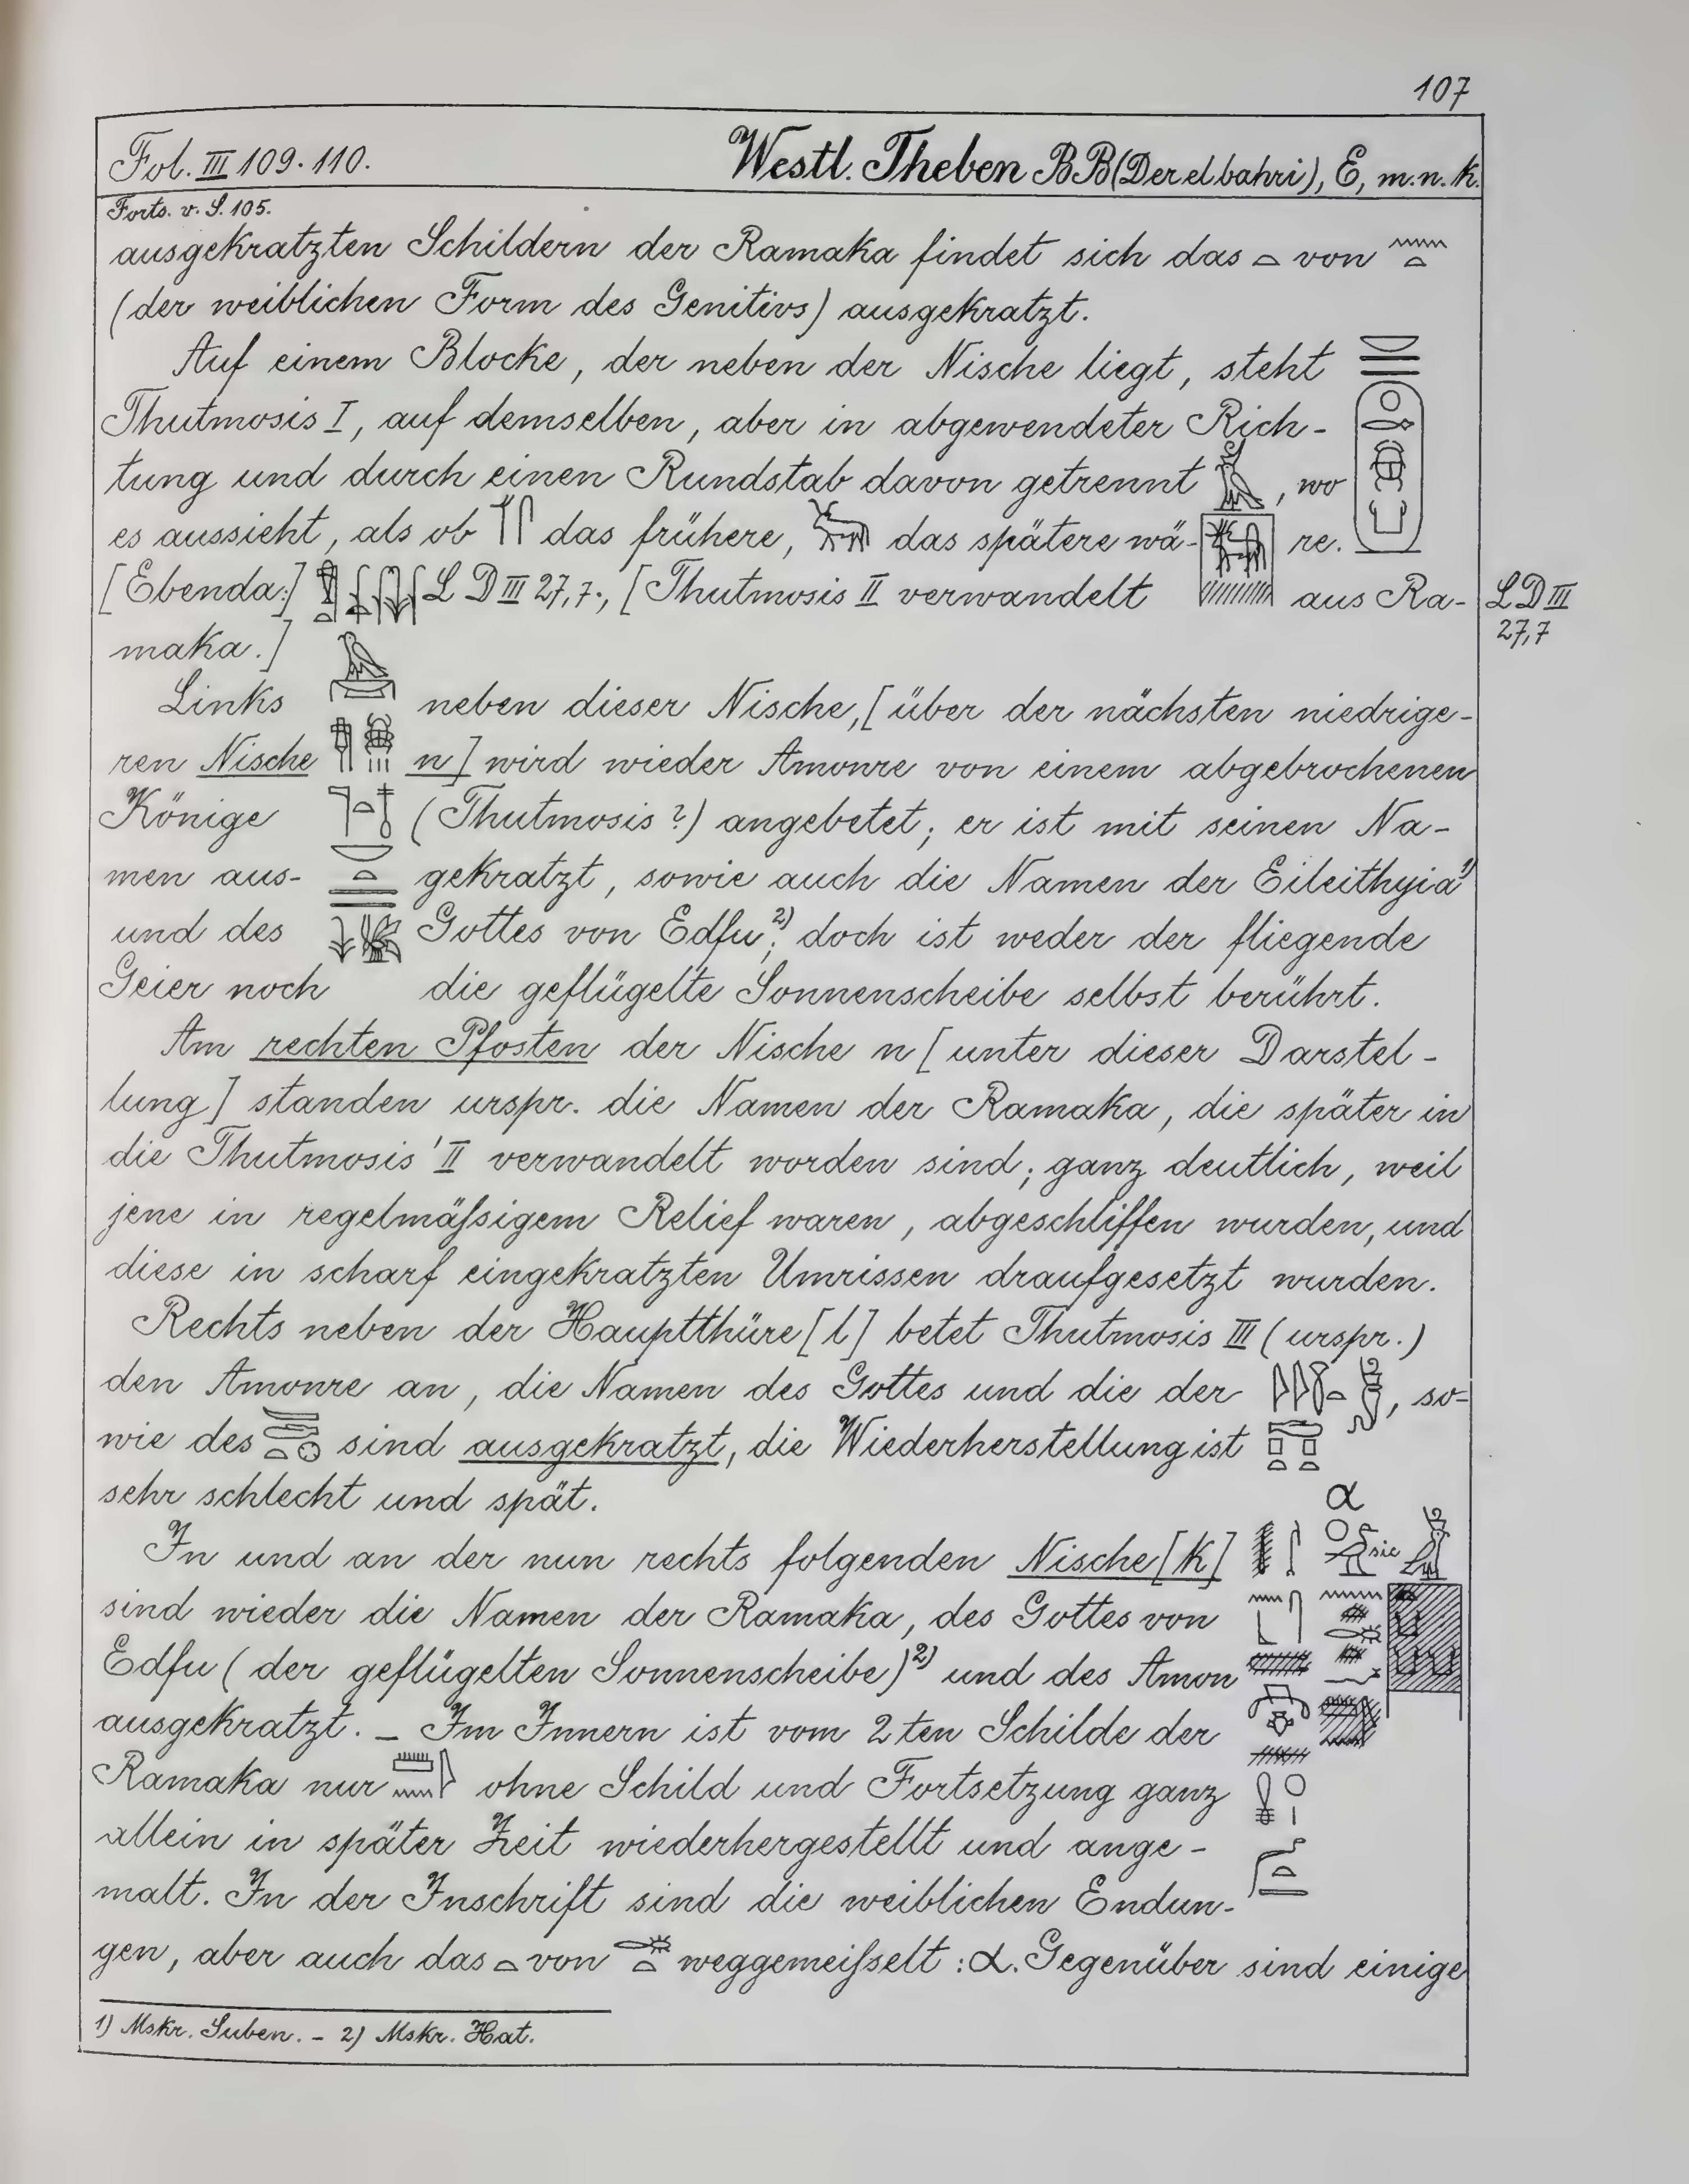 107
Fol. III 109-110. Westl. Theben BB (Der el bahri), E, m.n.k.
Forts. v. S. 105.
ausgekratzten Schildern der Ramaka findet sich das 𓏏 von 𓈖𓏏
(der weiblichen Form des Genitivs) ausgekratzt.
Auf einem Blocke, der neben der Nische liegt, steht
Thutmosis I, auf demselben, aber in abgewendeter Rich-
tung und durch einen Rundstab davon getrennt , wo
es aussieht, als ob das frühere, das spätere wä- re.
[Ebenda:] L D III 27,7., [Thutmosis II verwandelt aus Ra-
maka.]
L D III
27,7
Links neben dieser Nische, [über der nächsten niedrige-
ren Nische n] wird wieder Amonre von einem abgebrochenen
Könige (Thutmosis?) angebetet; er ist mit seinen Na-
men aus- gekratzt, sowie auch die Namen der Eileithyia 1)
und des Gottes von Edfu, 2) doch ist weder der fliegende
Geier noch die geflügelte Sonnenscheibe selbst berührt.
Am rechten Pfosten der Nische n [unter dieser Darstel-
lung] standen urspr. die Namen der Ramaka, die später in
die Thutmosis' II verwandelt worden sind; ganz deutlich, weil
jene in regelmäſsigem Relief waren, abgeschliffen wurden, und
diese in scharf eingekratzten Umrissen draufgesetzt wurden.
Rechts neben der Hauptthüre [l] betet Thutmosis III (urspr.)
den Amonre an, die Namen des Gottes und die der , so-
wie des sind ausgekratzt, die Wiederherstellung ist
sehr schlecht und spät.
α
sic
In und an der nun rechts folgenden Nische [k]
sind wieder die Namen der Ramaka, des Gottes von
Edfu (der geflügelten Sonnenscheibe) 2) und des Amon
ausgekratzt. – Im Innern ist vom 2ten Schilde der
Ramaka nur ohne Schild und Fortsetzung ganz
allein in später Zeit wiederhergestellt und ange-
malt. In der Inschrift sind die weiblichen Endun-
gen, aber auch das 𓏏 von weggemeiſselt: α. Gegenüber sind einige
1) Mskr. Suben. – 2) Mskr. Hat.